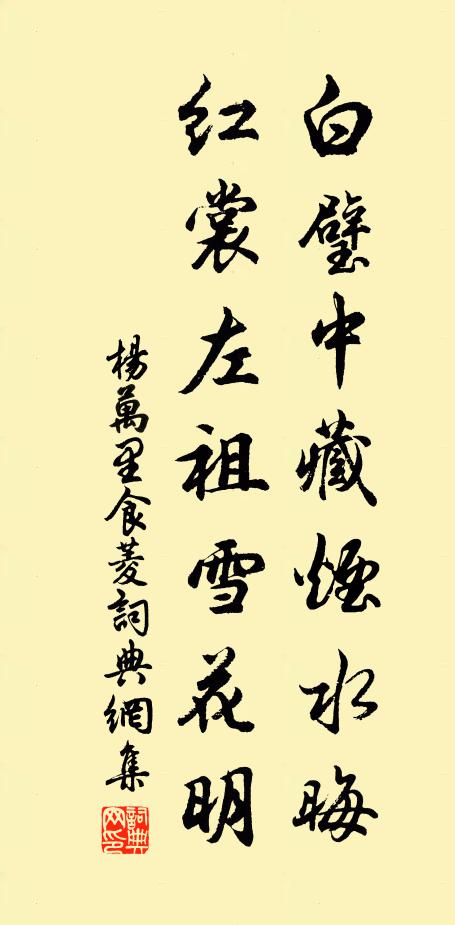 白璧中藏煙水晦
紅裳左祖雪花明
楊萬里食菱詞典網集
詞典网印